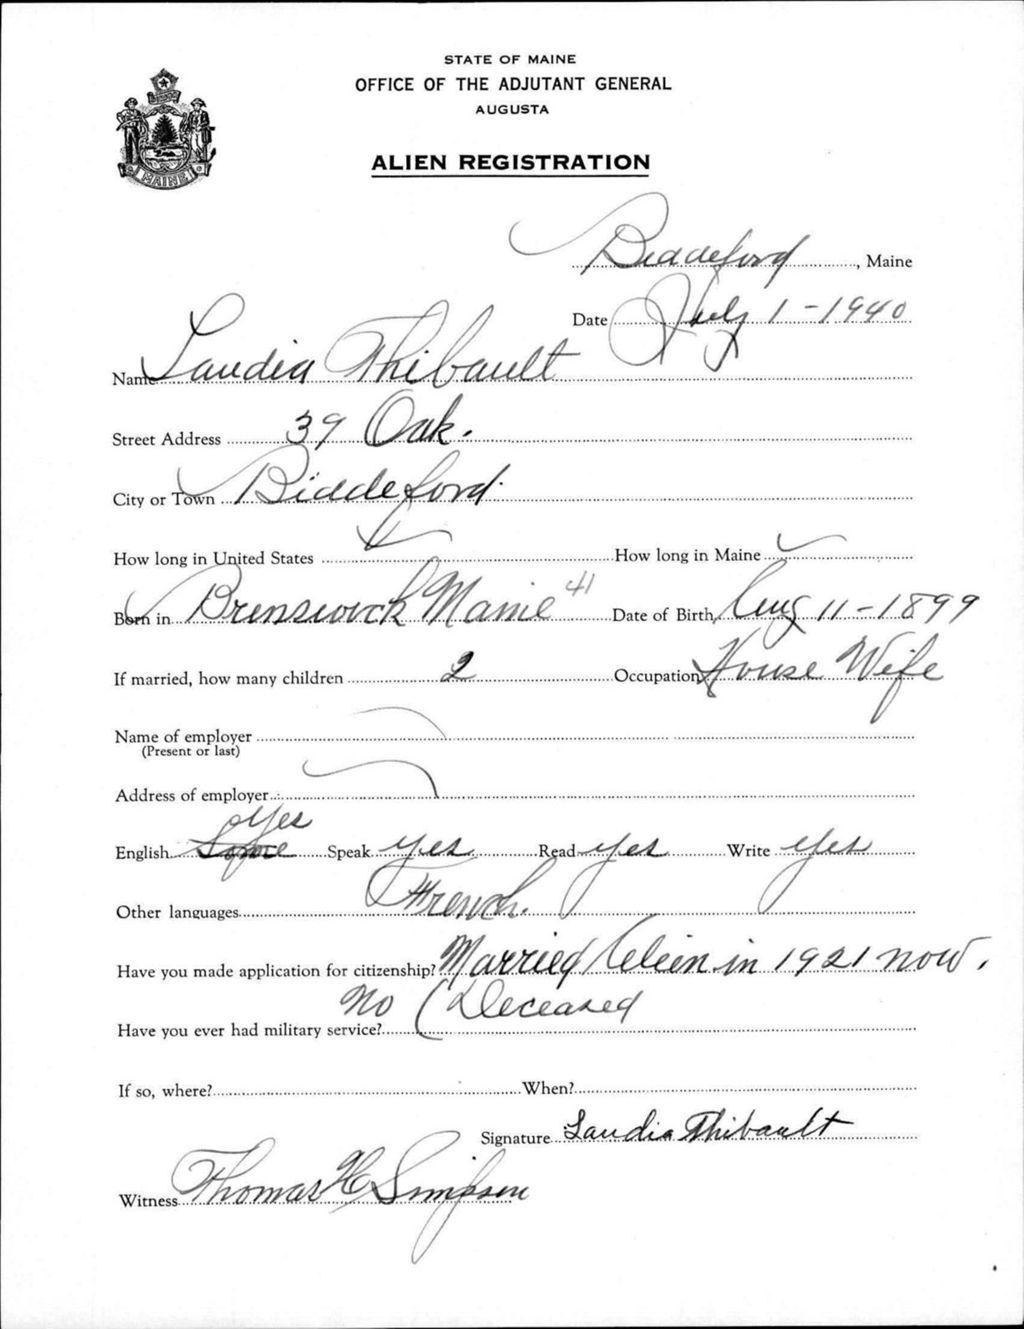 STATE OF MAINE
OFFICE OF THE ADJUTANT GENERAL
AUGUSTA
MAINE
ALIEN REGISTRATION
Biddeford, Maine
Date July 1 - 1940
Name Laudia Thibault
Street Address 39 Oak.
City or Town Biddeford
How long in United States How long in Maine
Born in Brunswick Maine 41 Date of Birth Aug 11 - 1899
If married, how many children 2 Occupation House Wife
Name of employer
(Present or last)
Address of employer
Yes
English Some Speak yes Read yes Write yes
Other languages French.
Have you made application for citizenship? Married Alien in 1921 now.
No (Deceased
Have you ever had military service?
If so, where? When?
Signature Laudia Thibault
Witness Thomas H Simpson